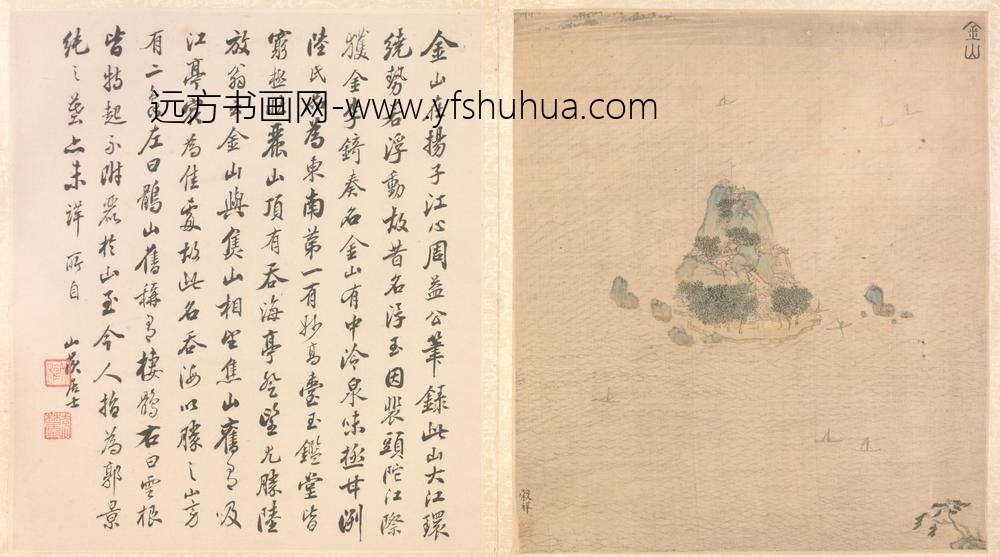 金山
金山在揚子江心周益公筆錄此山大江環
繞勢若浮動故昔名浮玉因裴頭陀江際
獲金李錡奏名金山有中泠泉味極甘洌
陸氏為東南第一有妙高臺玉鑑堂皆
窮極麗山頂有吞海亭登望尤勝陸
放翁金山與焦山相望焦山舊有吸
江亭為佳處故此名吞海以勝之山旁
有二左曰鶻山舊稱有棲鶻右曰雲根
皆特起不附麗於山至今人指為郭景
純之墓亦未詳所自
山農居士
远方书画网-www.yfshuhua.com